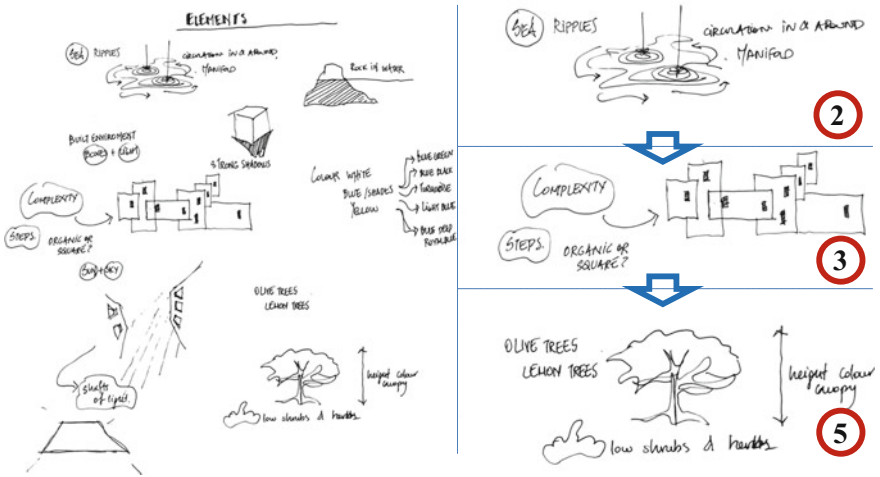 ELEMENTS
SEA RIPPLES
CIRCULATION IN & AROUND
MANIFOLD
ROCK IN WATER
BUILT ENVIROMENT
BOXES + LIGHT
STRONG SHADOWS
COLOUR WHITE
BLUE/SHADES
YELLOW
BLUE GREEN
BLUE BLACK
TURQUOISE
LIGHT BLUE
BLUE DEEP
ROYAL BLUE
COMPLEXITY
STEPS.
ORGANIC OR
SQUARE?
SUN + SKY
OLIVE TREES
LEMON TREES
shafts
of light.
height colour
canopy
low shrubs & herbs
SEA RIPPLES
CIRCULATION IN & AROUND
MANIFOLD
2
COMPLEXITY
STEPS.
ORGANIC OR
SQUARE?
3
OLIVE TREES
LEMON TREES
height colour
canopy
low shrubs & herbs
5